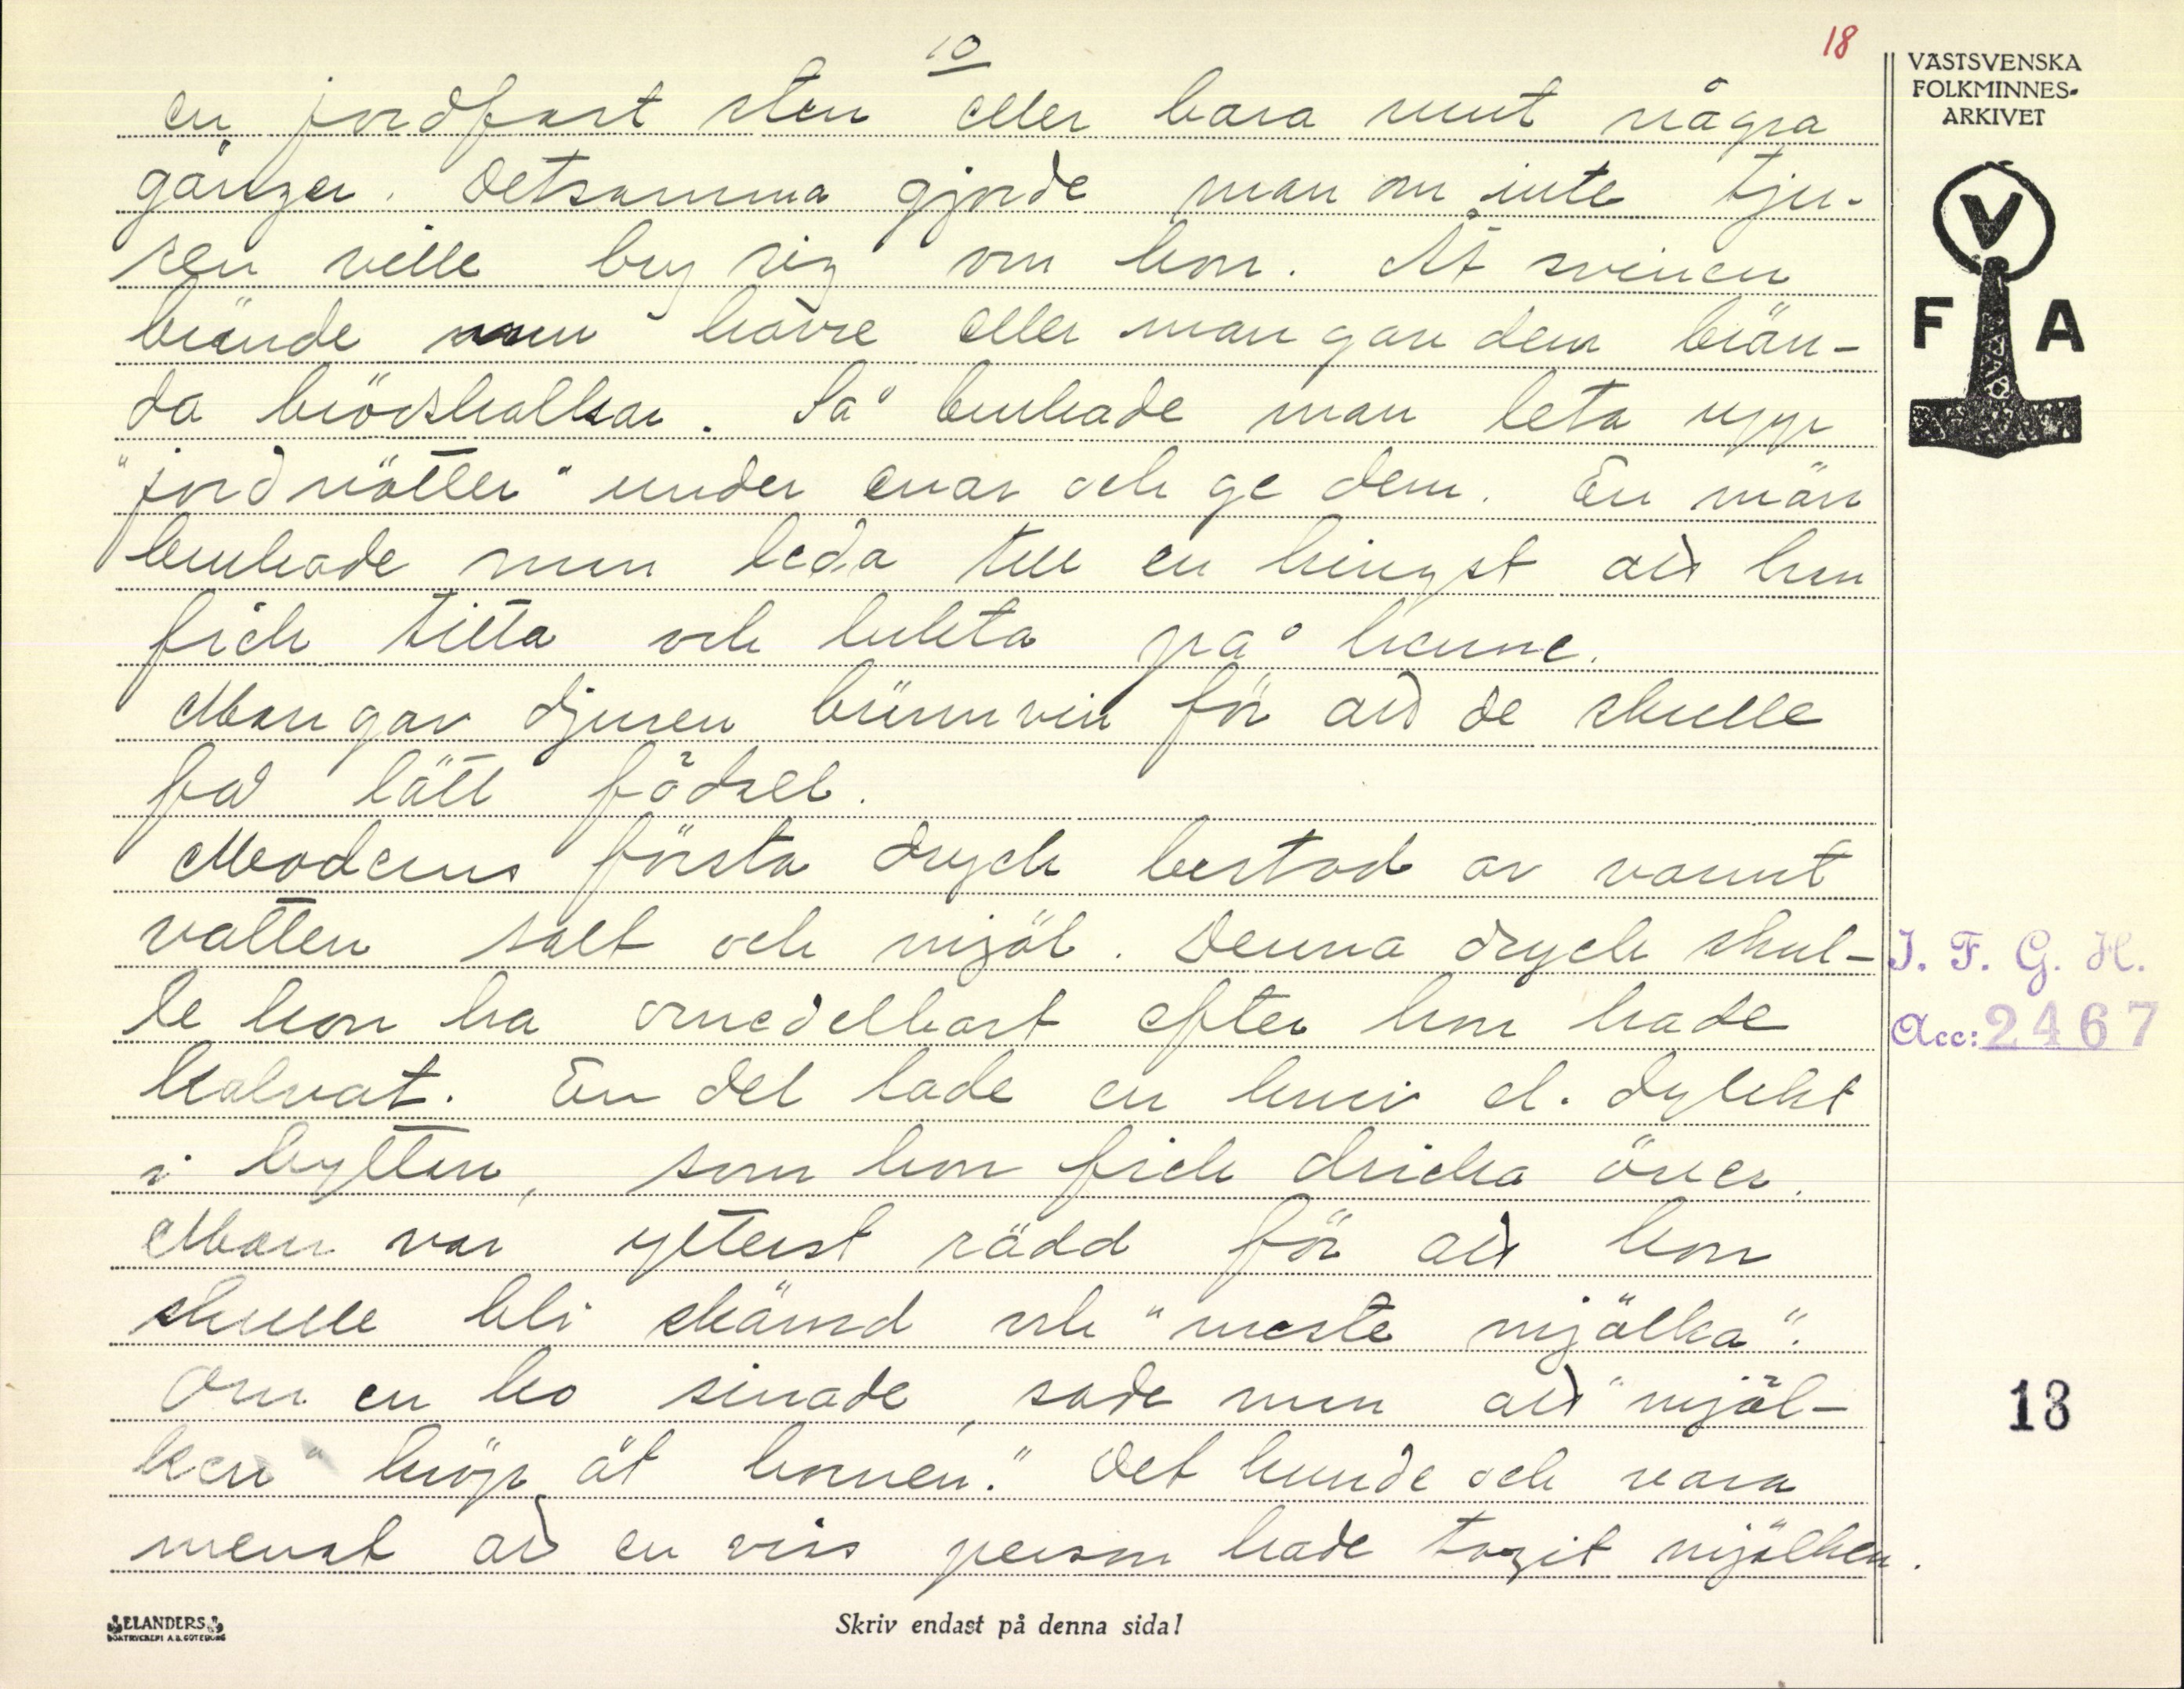 10
18
VÄSTSVENSKA
FOLKMINNES-
ARKIVET
V
F A
en jordfast sten eller bara runt några
gånger. Detsamma gjorde man om inte tju-
ren ville bry sig om kon. Åt svinen
brände man havre eller man gav dem brän-
da brödskalkar. Så brukade man leta upp
"jordnötter" under enar och ge dem. En märr
brukade man leda till en hingst att han
fick titta och lukta på henne.
Man gav djuren brännvin för att de skulle
få lätt födsel.
Moderns första dryck bestod av varmt
vatten salt och mjöl. Denna dryck skul-
le kon ha omedelbart efter hon hade
kalvat. En del lade en kniv el. dylikt
i byttan, som hon fick dricka över.
Man var ytterst rädd för att kon
skulle bli skämd och "meste mjölka".
Om en ko sinade, sade man att "mjöl-
ken" kröp åt hornen." Det kunde och vara
menat att en viss person hade tagit mjölken.
I. F. G. H.
Acc: 2467
18
ELANDERS
BOKTRYCKERI A.B. GÖTEBORG
Skriv endast på denna sida!